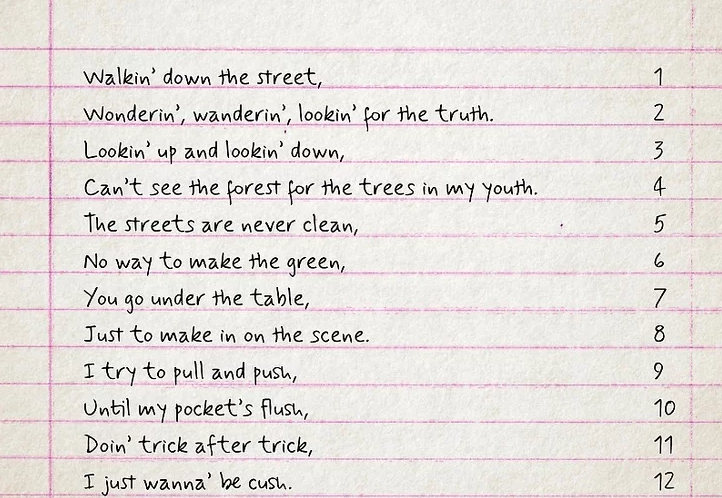 Walkin' down the street, 1
Wonderin', wanderin', lookin' for the truth. 2
Lookin' up and lookin' down, 3
Can't see the forest for the trees in my youth. 4
The streets are never clean, 5
No way to make the green, 6
You go under the table, 7
Just to make in on the scene. 8
I try to pull and push, 9
Until my pocket's flush, 10
Doin' trick after trick, 11
I just wanna' be cush. 12